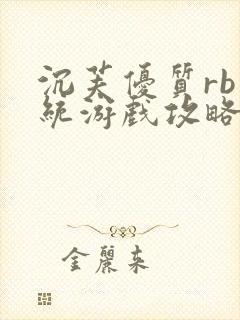 沉芙優質rb
統游戲攻略
金麗来